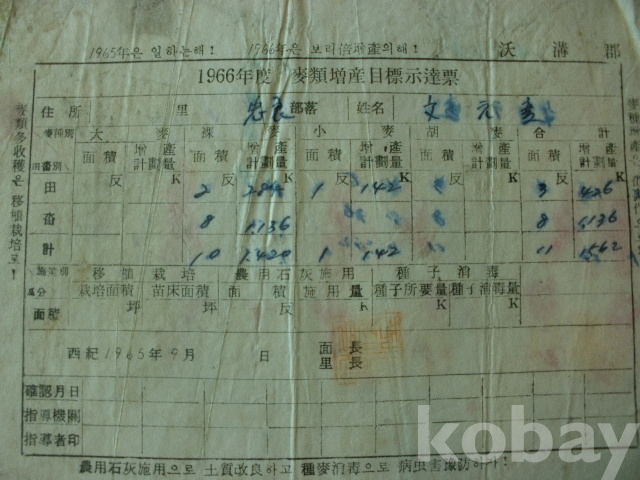 1965年은 일하는해! 1966年은 보리倍增產의해! 沃溝郡
1966年度 麥類增産目標示達票
住所 里 部落 姓名 文 元
麥種別 大麥 裸麥 小麥 胡麥 合計
用畓別 面積 增産計劃量 面積 增産計劃量 面積 增産計劃量 面積 增産計劃量 面積 增産計劃量
反 K 反 K 反 K 反 K 反 K
田 2 284 1 142 3 426
畓 8 1.136 8 1.136
計 10 1.420 1 142 11 1.562
施業別 移植栽培 農用石灰施用 種子消毒
區分 栽培面積 苗床面積 面積 施用量 種子所要量 種子消毒量
坪 坪 反 K K K
面積
西紀1965年9月 日 面長
里長
確認月日
指導機關
指導者印
農用石灰施用으로 土質改良하고 種麥消毒으로 病虫害豫防하자!
麥類多收穫은 移植栽培로!
kobay